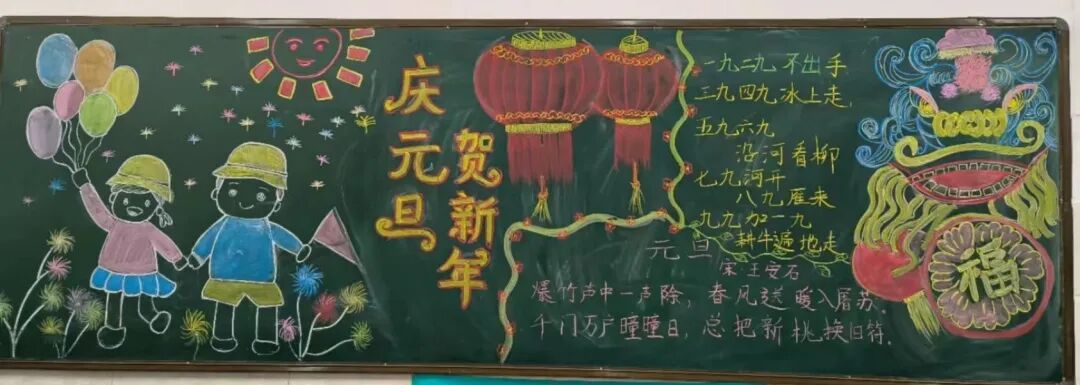 庆元旦
贺新年
一九二九 不出手
三九四九 冰上走
五九六九
沿河看柳
七九河开
八九雁来
九九加一九
耕牛遍地走
元旦
宋 王安石
爆竹声中一声除，春风送暖入屠苏.
千门万户曈曈日，总把新桃换旧符.
福